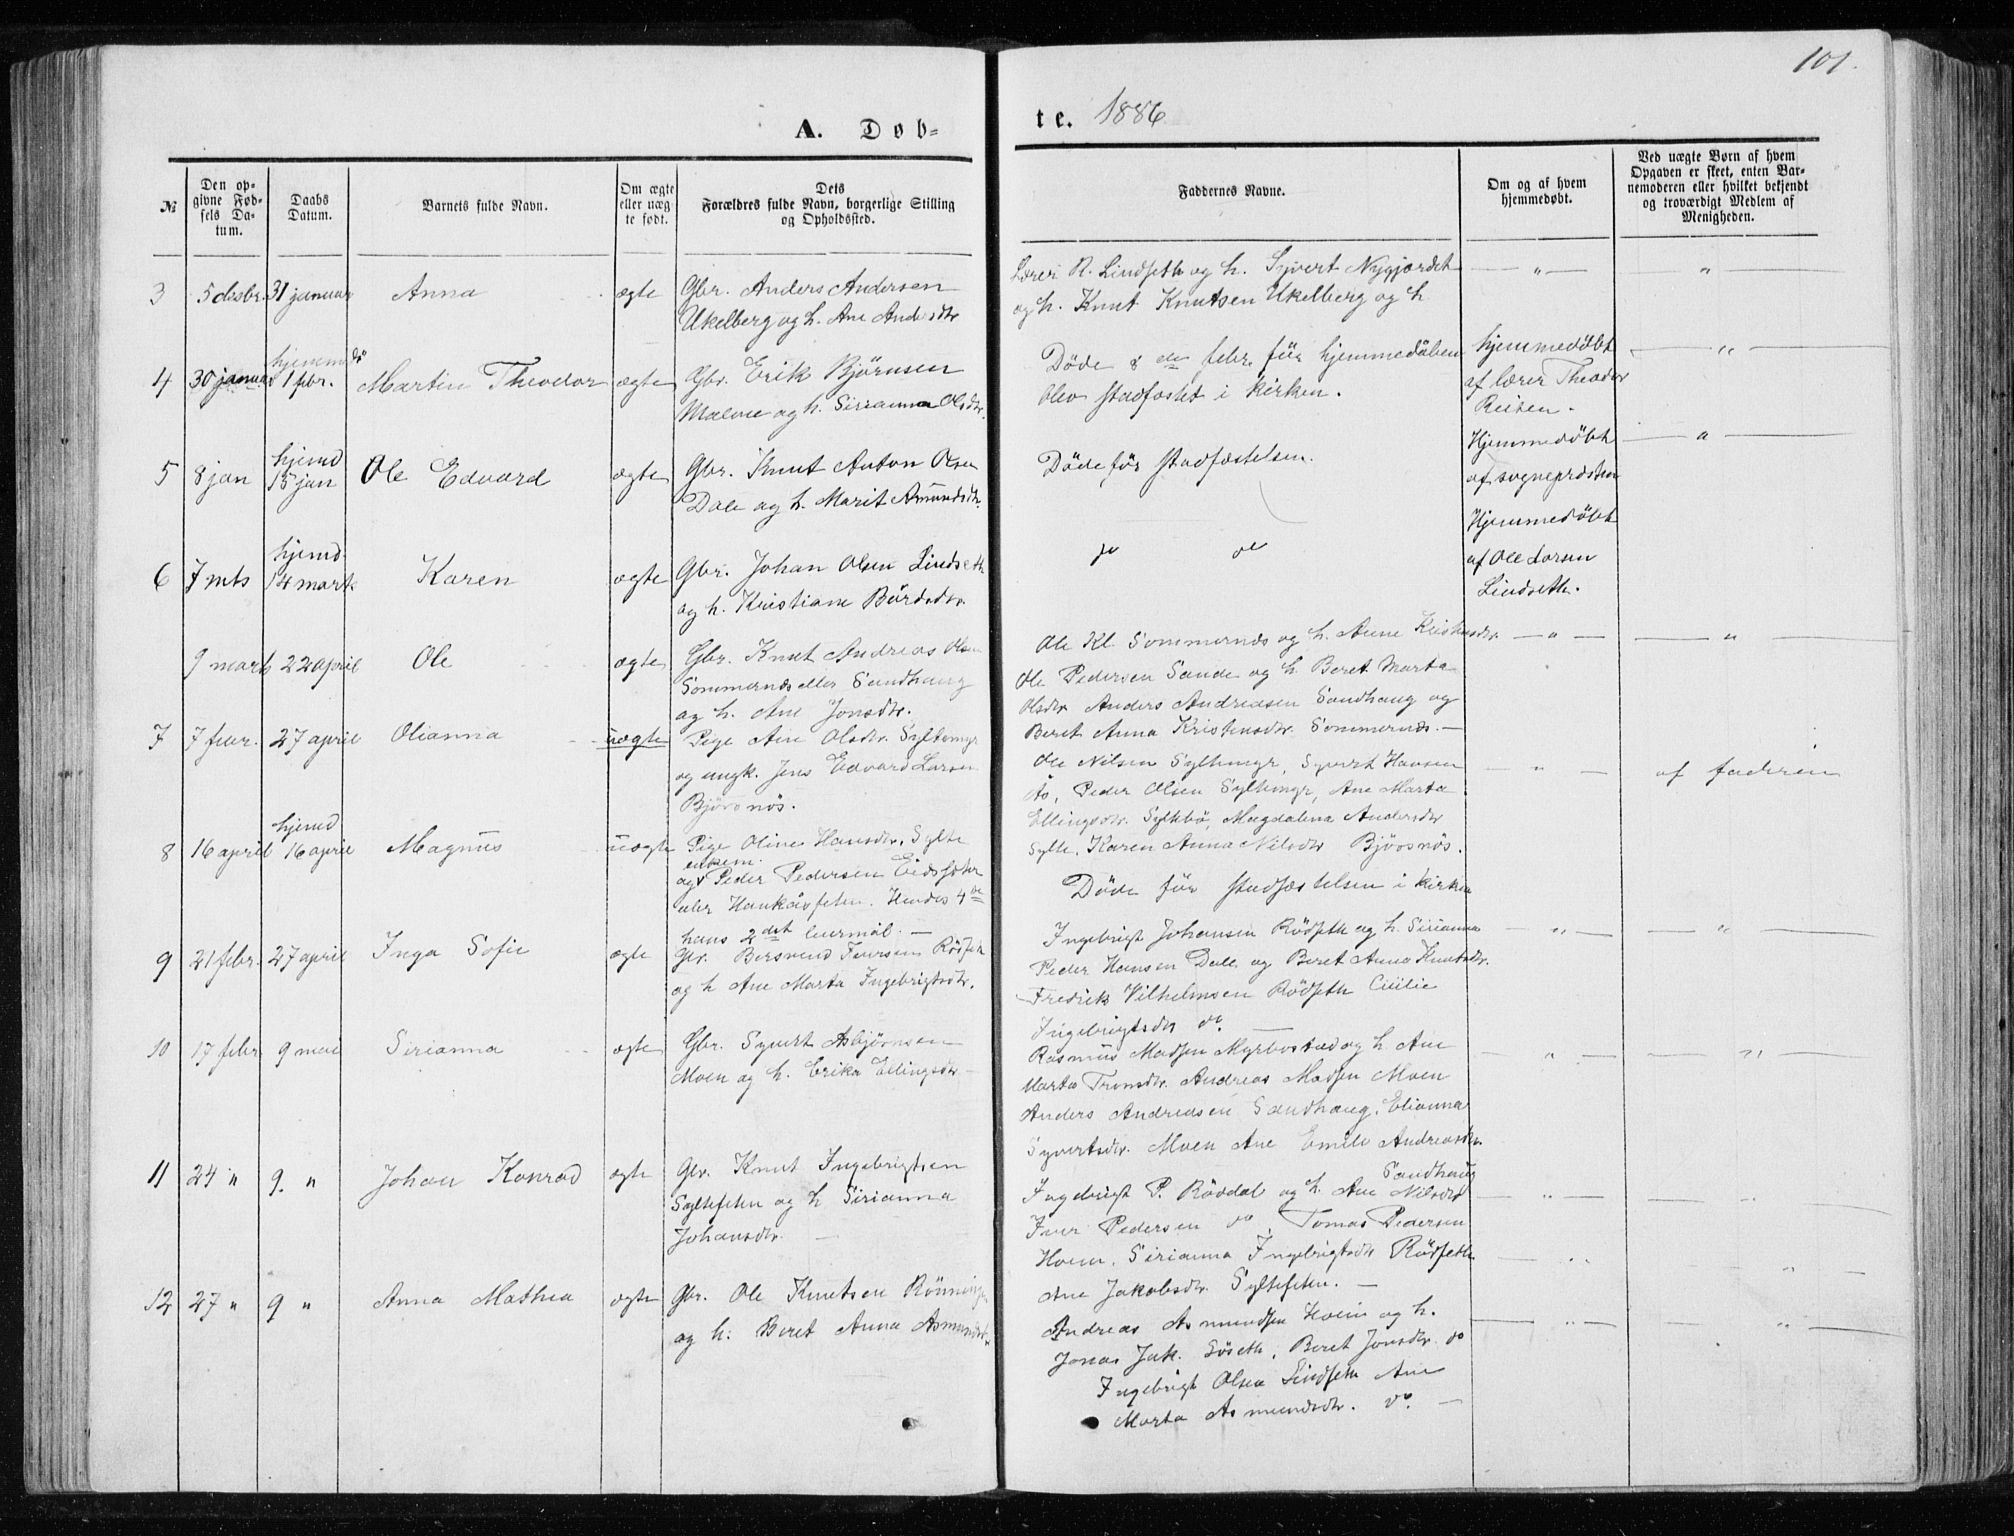 101.
A. Døb-
te. 1886
№
Den op-
givne Fød-
sels Da-
tum.
Daabs
Datum.
Barnets fulde Navn.
Om ægte
eller uæg-
te født.
Dets
Forældres fulde Navn, borgerlige Stilling
og Opholdssted.
Faddernes Navne.
Om og af hvem
hjemmedøbt.
Ved uægte Børn af hvem
Opgaven er skeet, enten Bar-
nemoderen eller hvilket bekjendt
og troværdigt Medlem af
Menigheden.
3 5 desbr. 31 januar Anna ægte Gbr. Anders Andersen
Ukelberg og h. Ane Andersdtr
R. Lindseth og h. Syvert Nygjordet — " — "
og h. Knut Knutsen Ukelberg og h
4 30 januar 1 febr. Martin Theodor ægte Gbr. Erik Bjørnsen
Malme og h. Sirianna Olsdtr.
Døde 8 de febr. før hjemmedåben
blev stadfæstet i kirken.
hjemmedøbt
af lærer Theodor
Reiten.
— " —
5 8 jan hjemd
15 jan Ole Edvard ægte Gbr. Knut Anton Olsen
Dale og h. Marit Amundsdtr.
Døde før stadfæstelsen.
Hjemmedøbt
af sogneprästen
— " —
6 7 mts hjemd
14 marts Karen ægte Gbr. Johan Olsen Lindseth
og h. Kristiane Bårdsdtr.
do do
Hjemmedøbt
af Ole Larsen
Lindseth.
9 marts 22 april Ole ægte Gbr. Knut Andreas Olsen
Sommernæs eller Sandhaug
og h. Ane Jonsdtr.
Ole Kl. Sommernæs og h. Anne Kristensdtr. — " — — " —
Ole Pedersen Sande og h. Beret Marta
Olsdtr Anders Andreasen Sandhaug og
Beret Anna Kristensdtr. Sommernæs. —
7 7 febr. 27 april Olianna uægte Pige Ane Olsdtr. Syltemyr
og ungk. Jens Edvard Larsen
Bjørsnös.
Ole Nilsen Syltemyr, Syvert Hansen — " — af faderen
Ås, Peder Olsen Syltemyr, Ane Marta
Ellingsdtr. Syltebö, Magdalena Andersdtr
Sylte, Karen Anna Nilsdtr Bjørsnös.
8 16 april hjemd
16 april Magnus uægte Pige Oline Hansdtr. Sylte
og enkem. Peder Pedersen
eller . Hendes 4 de
hans 2 det leiermål. —
Døde før stadfæstelsen i kirken
9 21 febr. 27 april Inga Sofie ægte Gbr. Bersvend Rødseth
og h Ane Marta Ingebrigtsdtr.
Ingebrigt Johansen Rödseth og h. Sirianna — " — — " —
Peder Hansen Dale og Beret Anna Knutsdtr.
Fredrik Vilhelmsen Rödseth Cicilie
Ingebrigtsdtr do. —
10 17 febr. 9 mai Sirianna ægte Gbr. Syvert Asbjørnsen
Moen og h. Erika Ellingsdtr. —
Rasmus Madsen Myrbostad og h. Ane — " — — " —
Marta Tronsdtr. Andreas Madsen Moen
Anders Andreasen Sandhaug, Elianna
Syvertsdtr. Moen Ane Emile Andreasdtr.
Sandhaug
11 24 " 9. " Johan Konrad ægte Gbr. Knut Ingebrigtsen
Syltesæten og h Sirianna
Johansdtr. —
Ingebrigt P. Rövdal og h. Ane Nilsdtr — " — — " —
Iver Pedersen do, Tomas Pedersen
Hoem. Sirianna Ingebrigtsdtr Rödseth
Ane Jakobsdtr. Syltesæten. —
12 27 " 9 " Anna Mathea ægte Gbr. Ole Knutsen Rönningen
og h. Beret Anna Asmundsdtr.
Andreas Asmundsen Hoem og h. — " — — " —
Jonas Jak. Söseth, Beret Jonsdtr. do
Ingebrigt Olsen Lindseth Ane
Marta Asmundsdtr. do. —